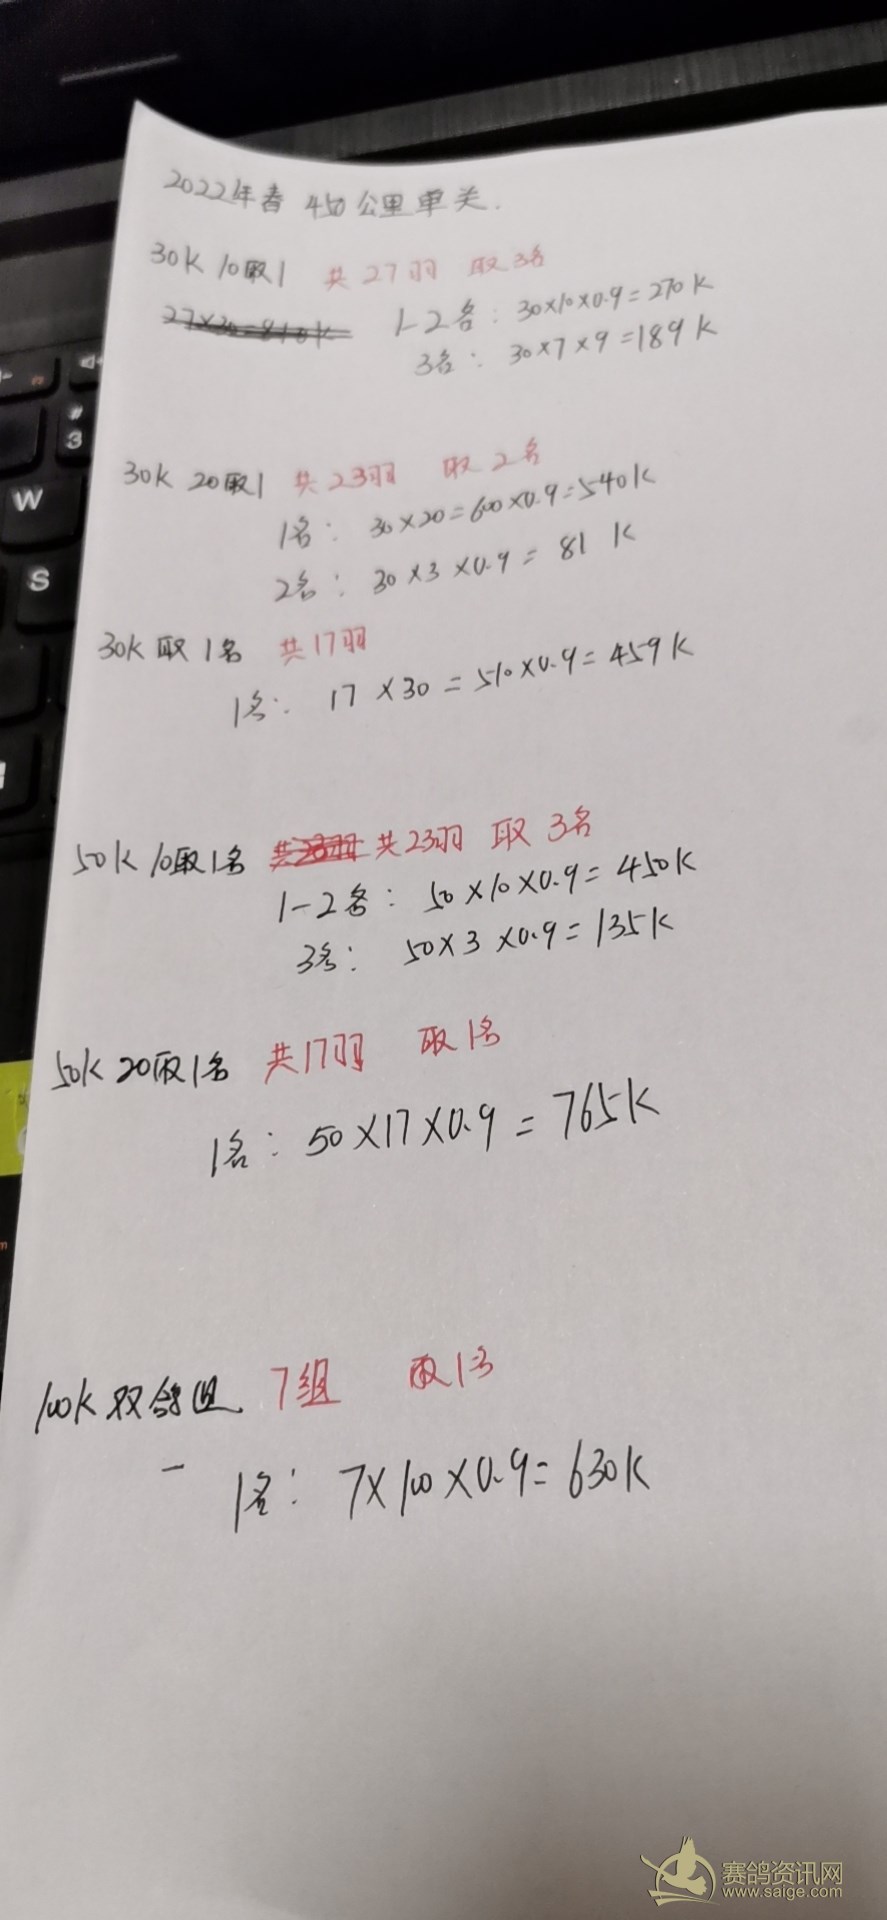 2022年春 450公里单关.
30K 10取1 共27羽 取3名
27×30=810K 1-2名: 30×10×0.9=270K
3名: 30×7×9=189K
30K 20取1 共23羽 取2名
1名: 30×20=600×0.9=540K
2名: 30×3×0.9= 81 K
30K 取1名 共17羽
1名: 17×30=510×0.9=459K
50K 10取1名 共23羽 共23羽 取3名
1-2名: 50×10×0.9=450K
3名: 50×3×0.9=135K
50K 20取1名 共17羽 取1名
1名: 50×17×0.9=765K
100K 双鸽组 7组 取1名
1名: 7×100×0.9=630K
W
S
#
3
赛鸽资讯网
www.saige.com